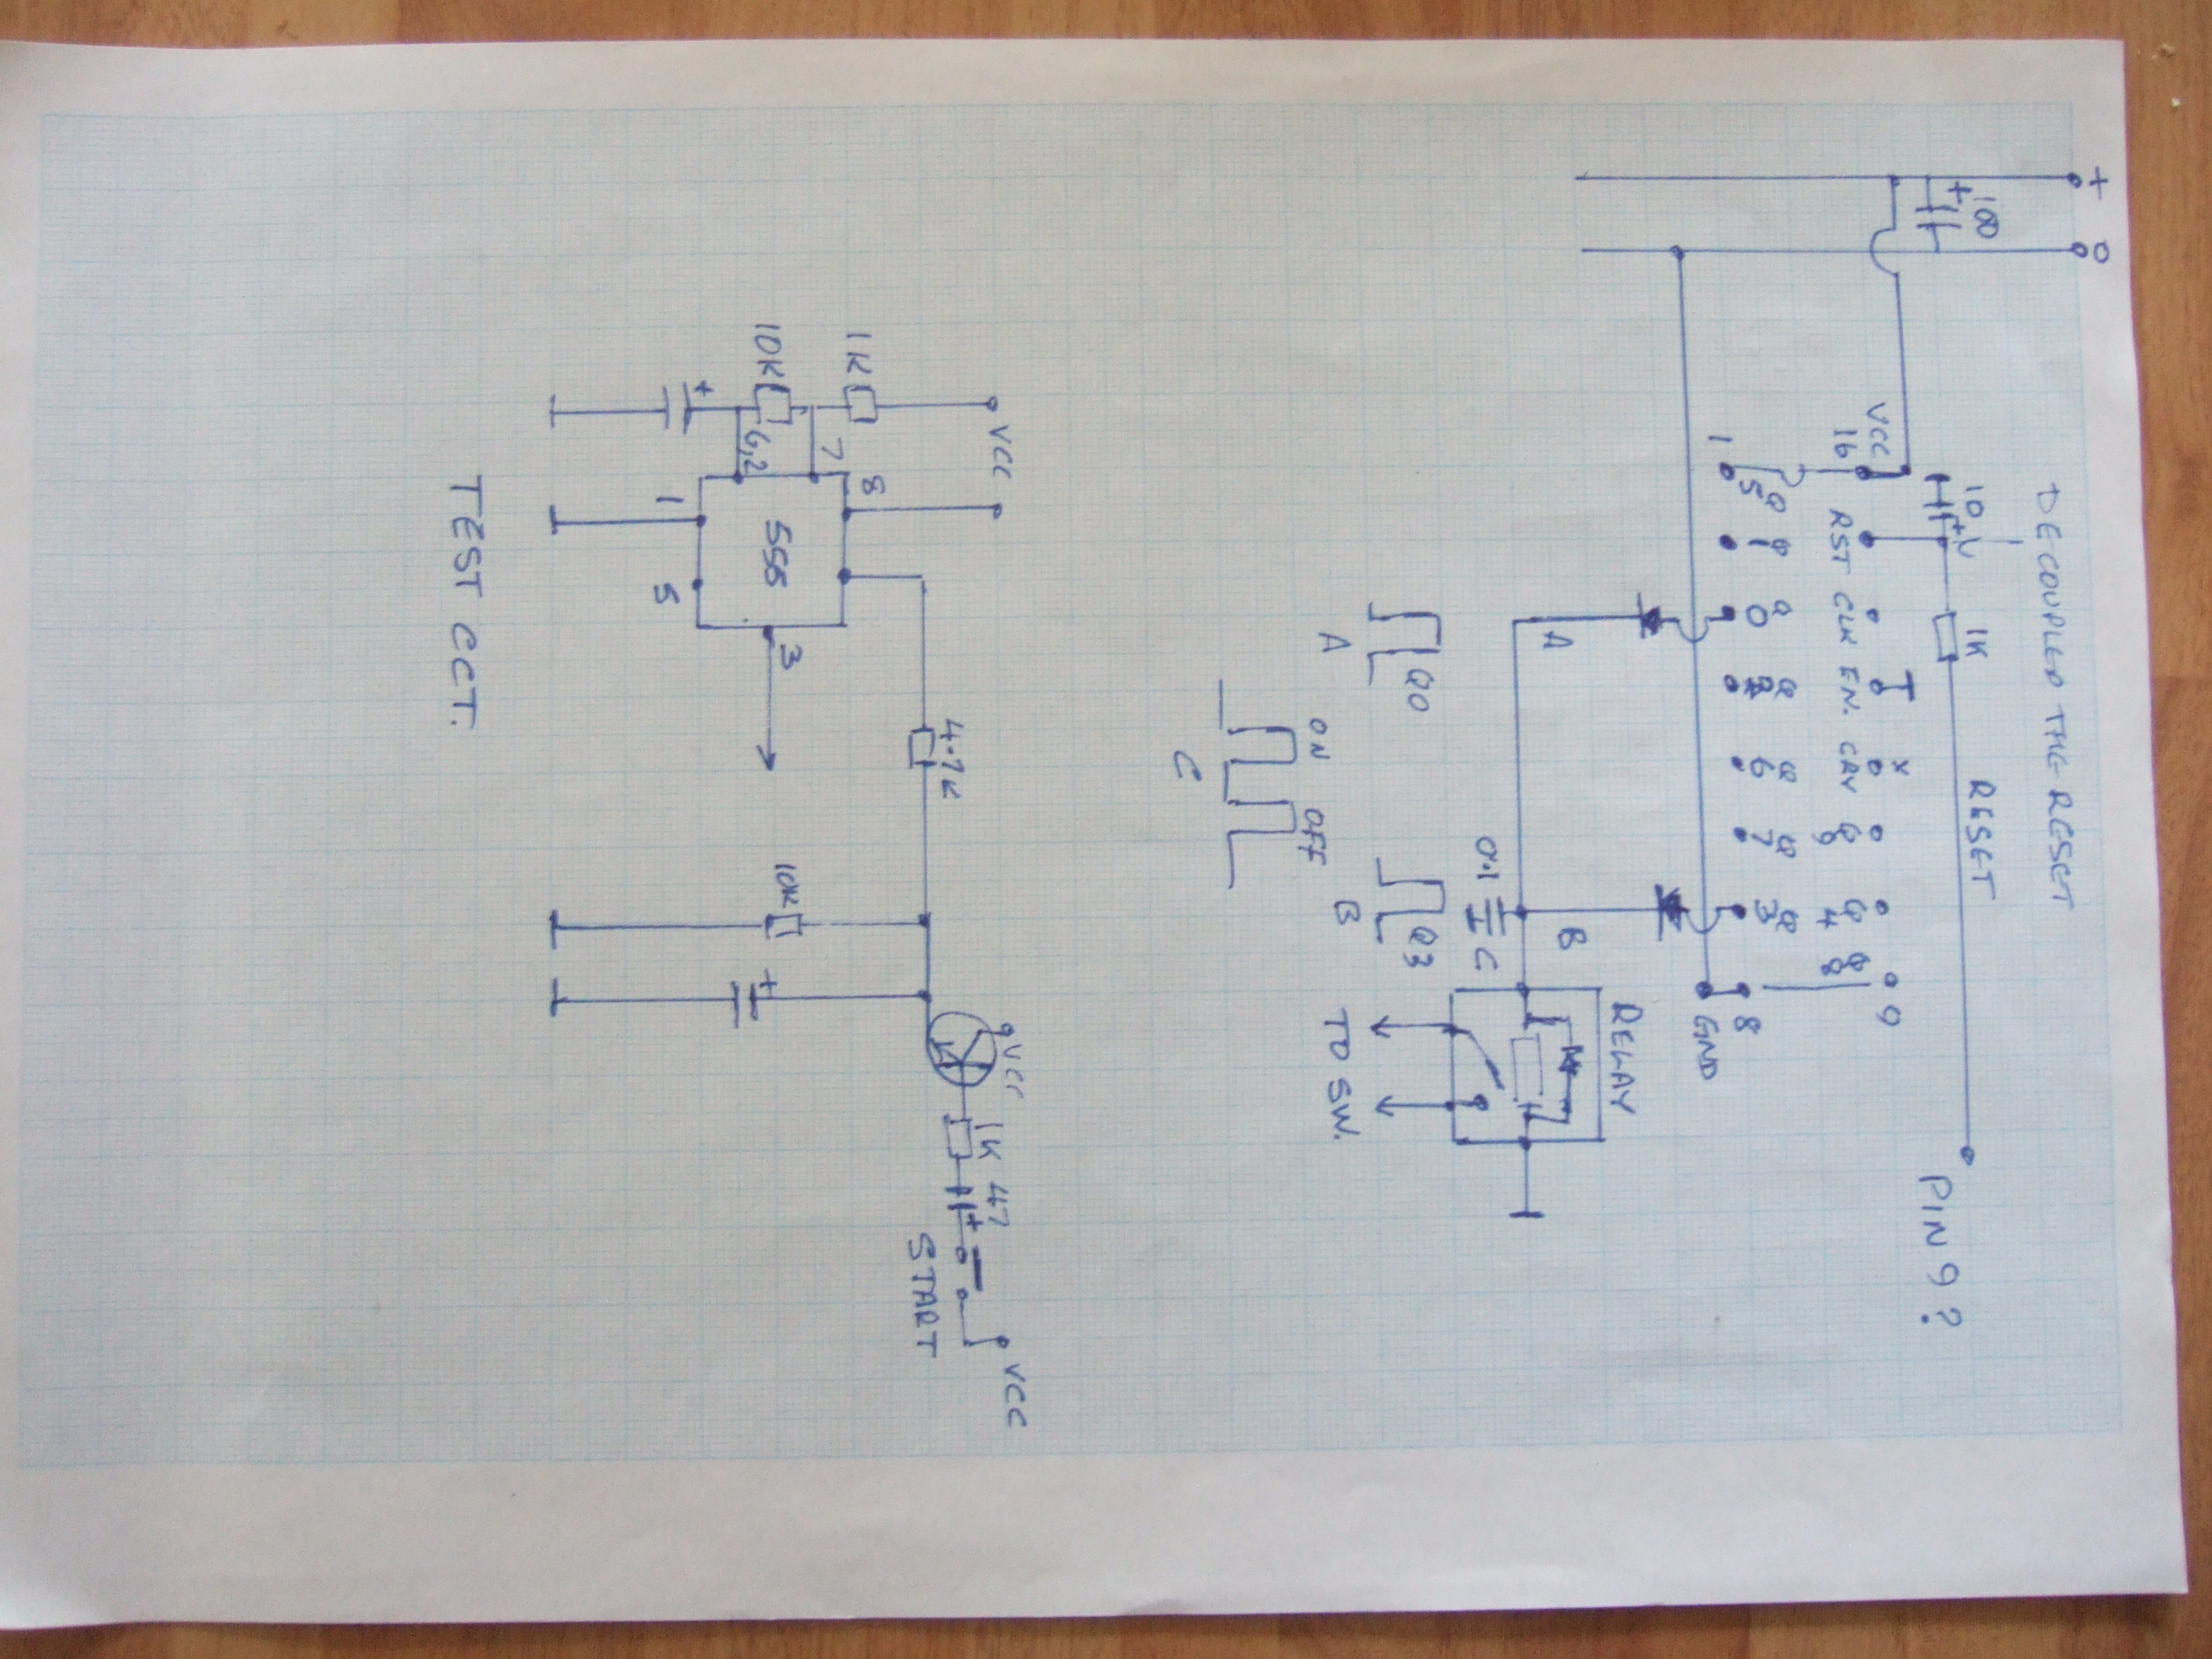 DECOUPLED THE RESET
+
O
100
+
10
+
1K
RESET
PIN 9?
VCC
16
RST
CLK
EN.
CRY
X
Q
9
Q
4
Q
8
9
1
Q
5
Q
1
Q
0
Q
2
Q
6
Q
7
Q
3
8
GND
A
B
RELAY
0.1
C
TO SW.
Q0
A
Q3
B
ON
OFF
C
VCC
1K
10K
+
7
6,2
8
555
1
5
3
4.7K
10K
+
VCC
1K
47
+
START
VCC
TEST CCT.